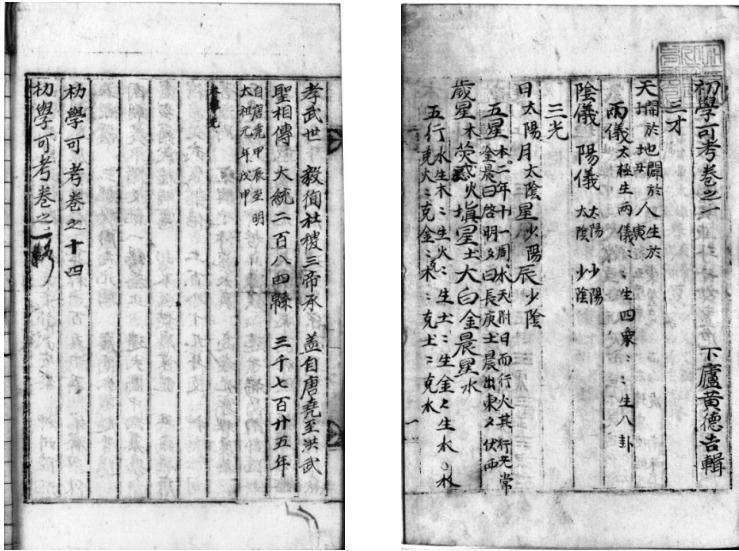 初學可考卷之一 下廬黃德吉輯
三才
天開於 地闢於 人生於
兩儀 太極生兩儀：：生四象：：生八卦
陰儀 陽儀 太陽 少陽 太陰 少陰
三光
日太陽月太陰星少陽辰少陰
五星 木二年十一周水天附日而行火其行无常
金晨曰啓明夕曰長庚土晨出東夕伏西
歲星木熒惑火塡星土大白金晨星水
五行水生木：生火：生土：生金：生水○ 克火：克金：克木：克土：克水
孝武世 毅 社稷三帝承 盖自唐堯至洪武
聖相傳 大統二百八四 三千七百廿五年
自唐堯甲辰至明
太祖元年戊申
初學可考卷之十四
初學可考卷之一終